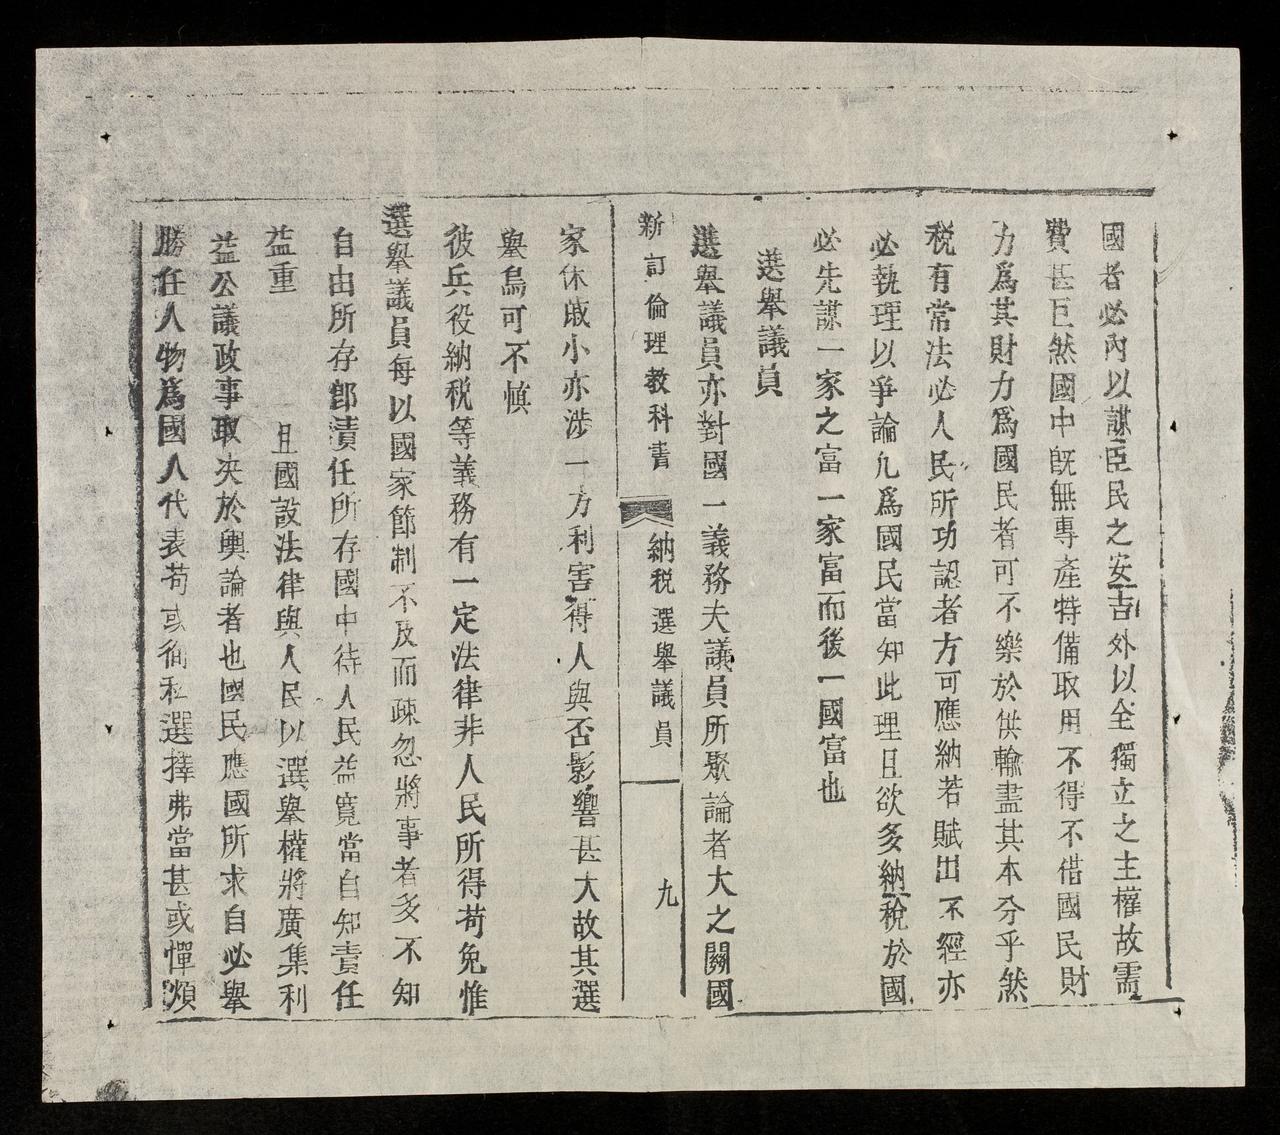 國者必內以謀臣民之安吉外以全獨立之主權故需
費甚巨然國中旣無專產特備取用不得不借國民財
力爲其財力爲國民者可不樂於供輸盡其本分乎然
稅有常法必人民所功認者方可應納若賦出不經亦
必執理以爭論凢爲國民當知此理且欲多納稅於國
必先謀一家之富一家富而後一國富也
選舉議員
選舉議員亦對國一義務夫議員所聚論者大之關國
新訂倫理教科書 納稅 選舉議員 九
家休戚小亦涉一方利害得人與否影響甚大故其選
舉烏可不慎
彼兵役納稅等義務有一定法律非人民所得苟免惟
選舉議員每以國家節制不及而疎忽將事者多不知
自由所存郎責任所存國中待人民益寬當自知責任
益重 且國設法律與人民以選舉權將廣集利
益公議政事取决於輿論者也國民應國所求自必舉
勝任人物爲國人代表苟或徇私選擇弗當甚或憚煩